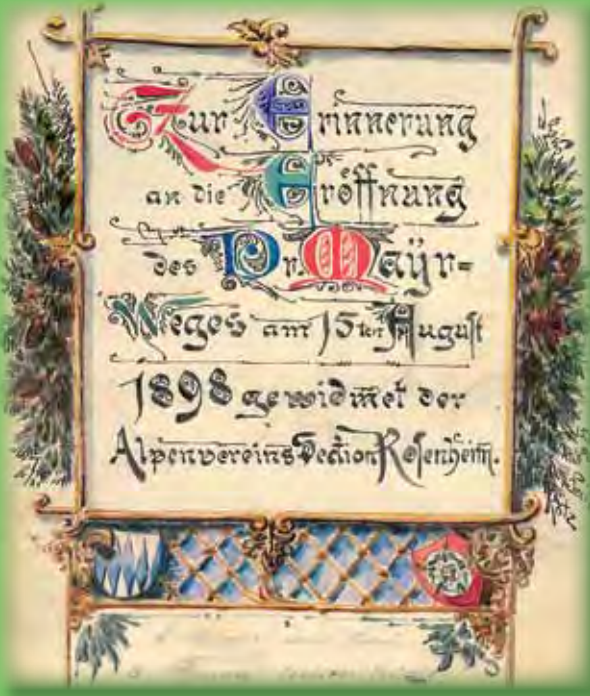 Zur Erinnerung
an die Eröffnung
des Dr. Maÿr=
Weges am 15ten August
1898 gewidmet der
Alpenvereins Section Rosenheim.